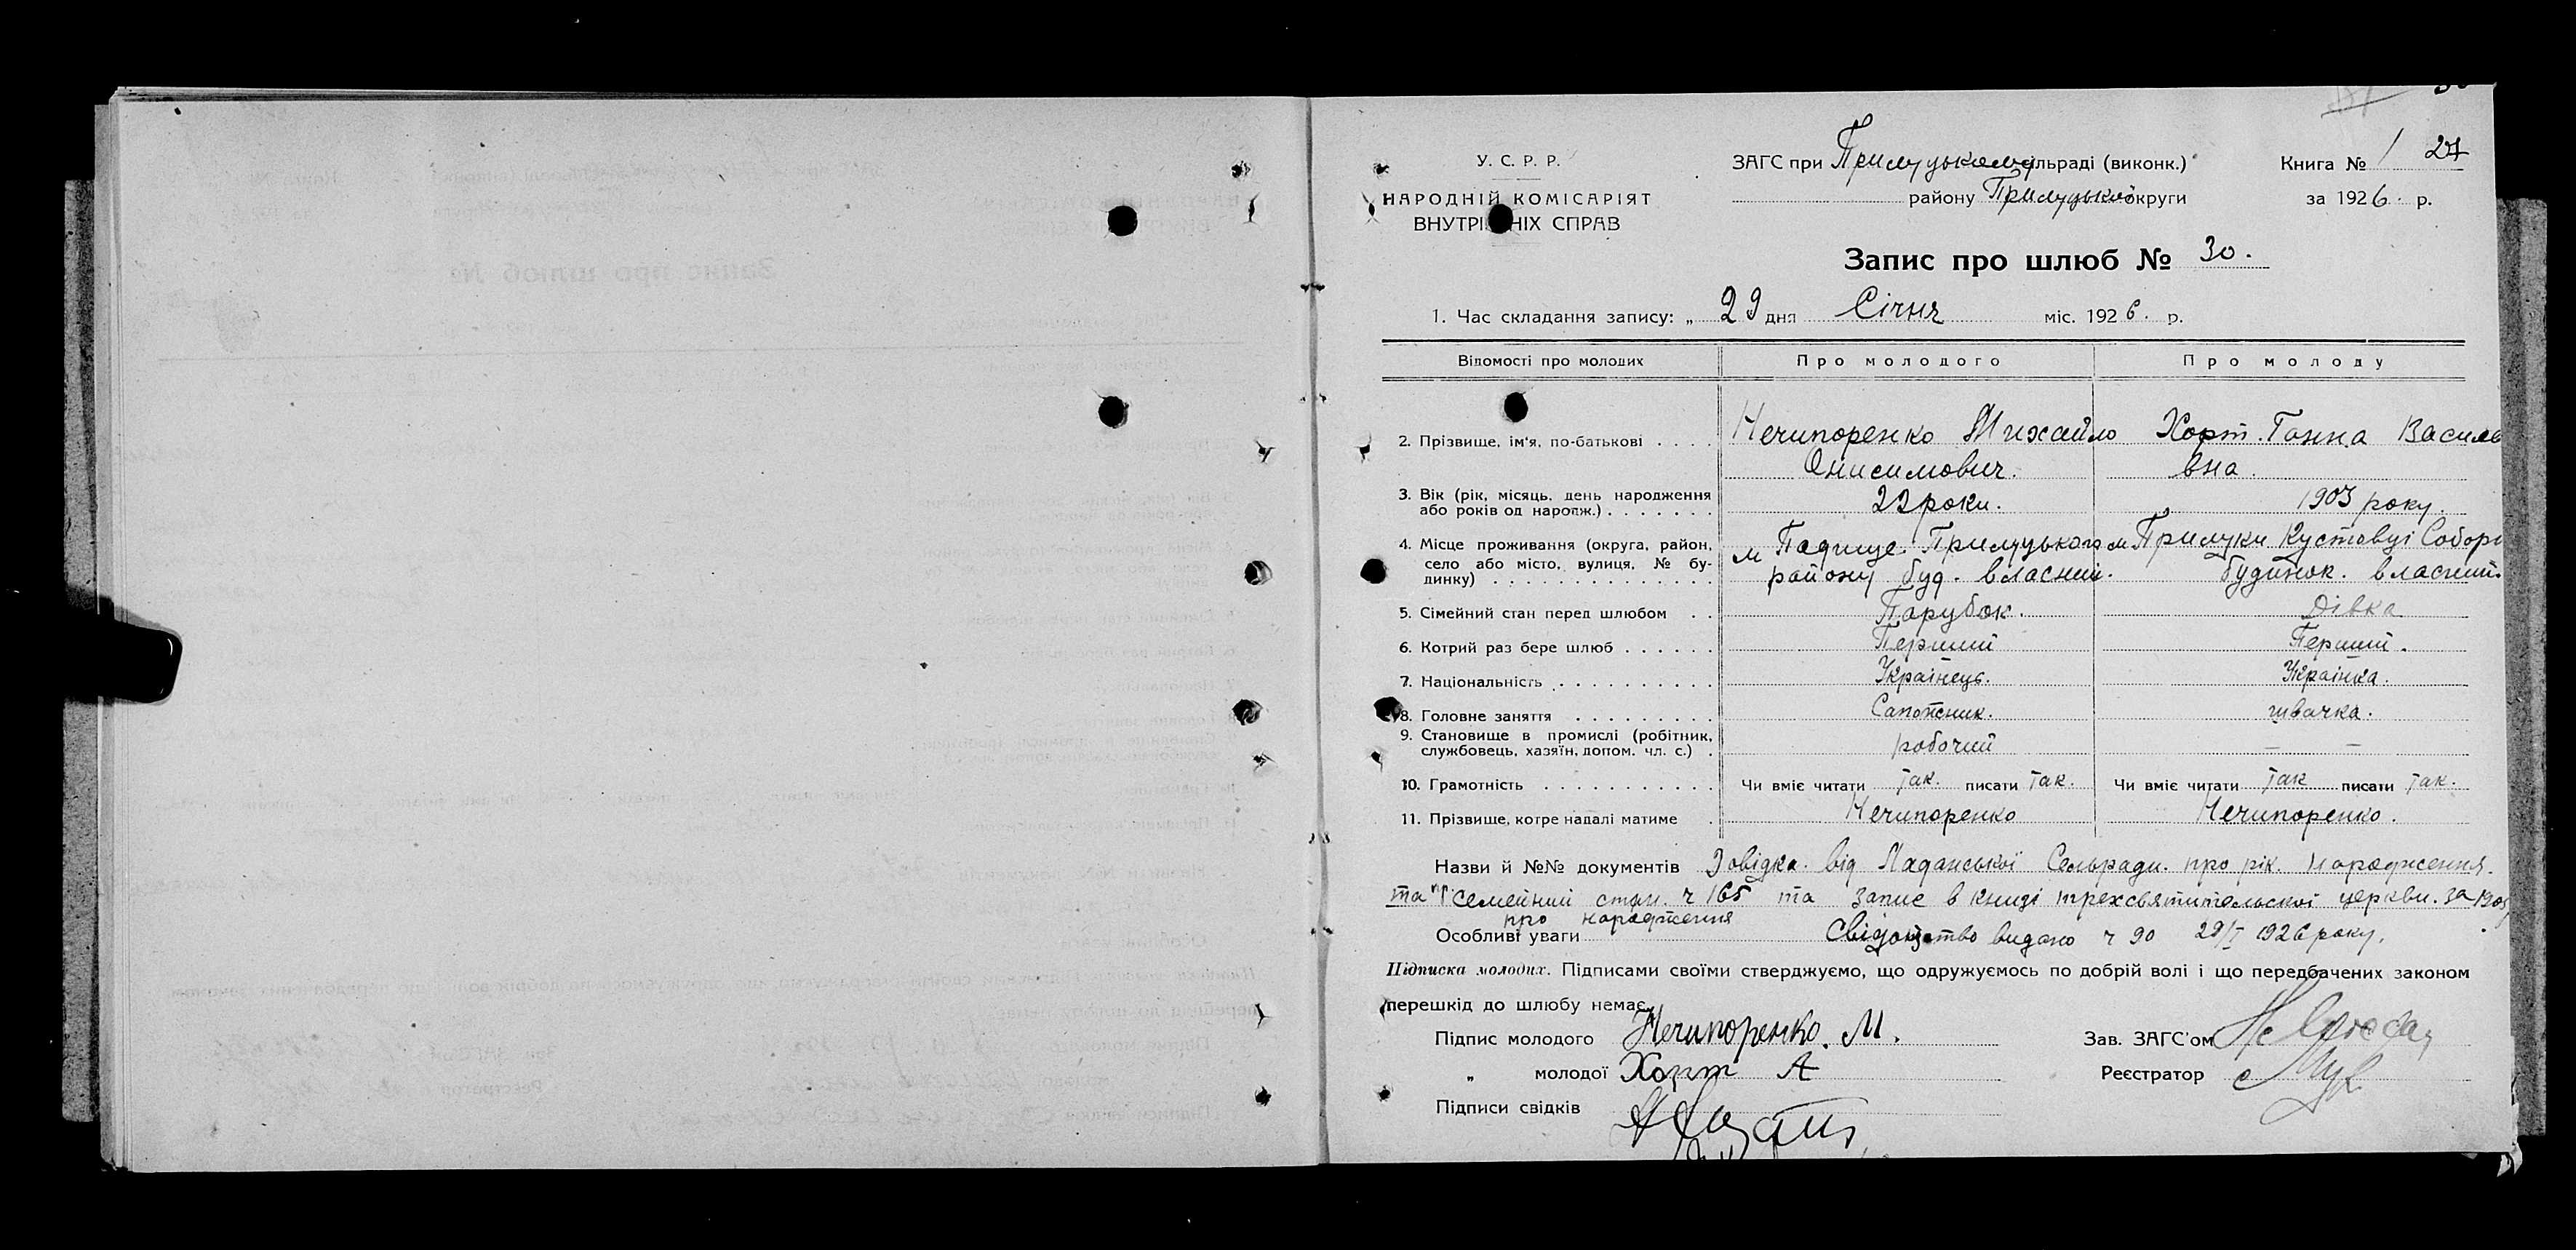 У. С. Р. Р.
НАРОДНІЙ КОМІСАРІЯТ
ВНУТРІШНІХ СПРАВ
ЗАГС при Прилуцькому сільраді (виконк.)
району Прилуцької округи
Книга № 1 27
за 1926 р.
Запис про шлюб № 30.
1. Час складання запису: „ 29 дня Січня міс. 1926. р.
Відомості про молодих Про молодого Про молоду
2. Прізвище, ім'я, по-батькові . . . . Нечипоренко Михайло Хорт. Ганна Василь
Онисимович. вна.
3. Вік (рік, місяць, день народження
або років од народж.) . . . . . . . 22 роки. 1903 року.
4. Місце проживання (округа, район, м Ладище. Прилуцького м Прилуки Кустовці Собор
село або місто, вулиця, № бу-
динку) . . . . . . . . . . . . . . району буд. власний. будинок. власний.
5. Сімейний стан перед шлюбом . . Парубок. Дівка
6. Котрий раз бере шлюб . . . . . . Перший Перший.
7. Національність . . . . . . . . . . Українець. Українка.
8. Головне заняття . . . . . . . . . Сапожник. швачка.
9. Становище в промислі (робітник,
службовець, хазяїн, допом. чл. с.) . робочий — —
10. Грамотність . . . . . . . . . . . Чи вміє читати так. писати так. Чи вміє читати так писати так.
11. Прізвище, котре надалі матиме . Нечипоренко Нечипоренко.
Назви й №№ документів Довідка. від Ладанської Сельради. про рік. народження.
та семейний стан. ч 165 та запис в книзі трехсвятительскої церкви. за 1903
про народження
Особливі уваги Свідоцтво видано ч 90 29/I 1926 року.
Підписка молодих. Підписами своїми стверджуємо, що одружуємось по добрій волі і що передбачених законом
перешкід до шлюбу немає.
Підпис молодого Нечипоренко. М.
Зав. ЗАГС'ом
„ молодої Хорт А
Реєстратор
Підписи свідків